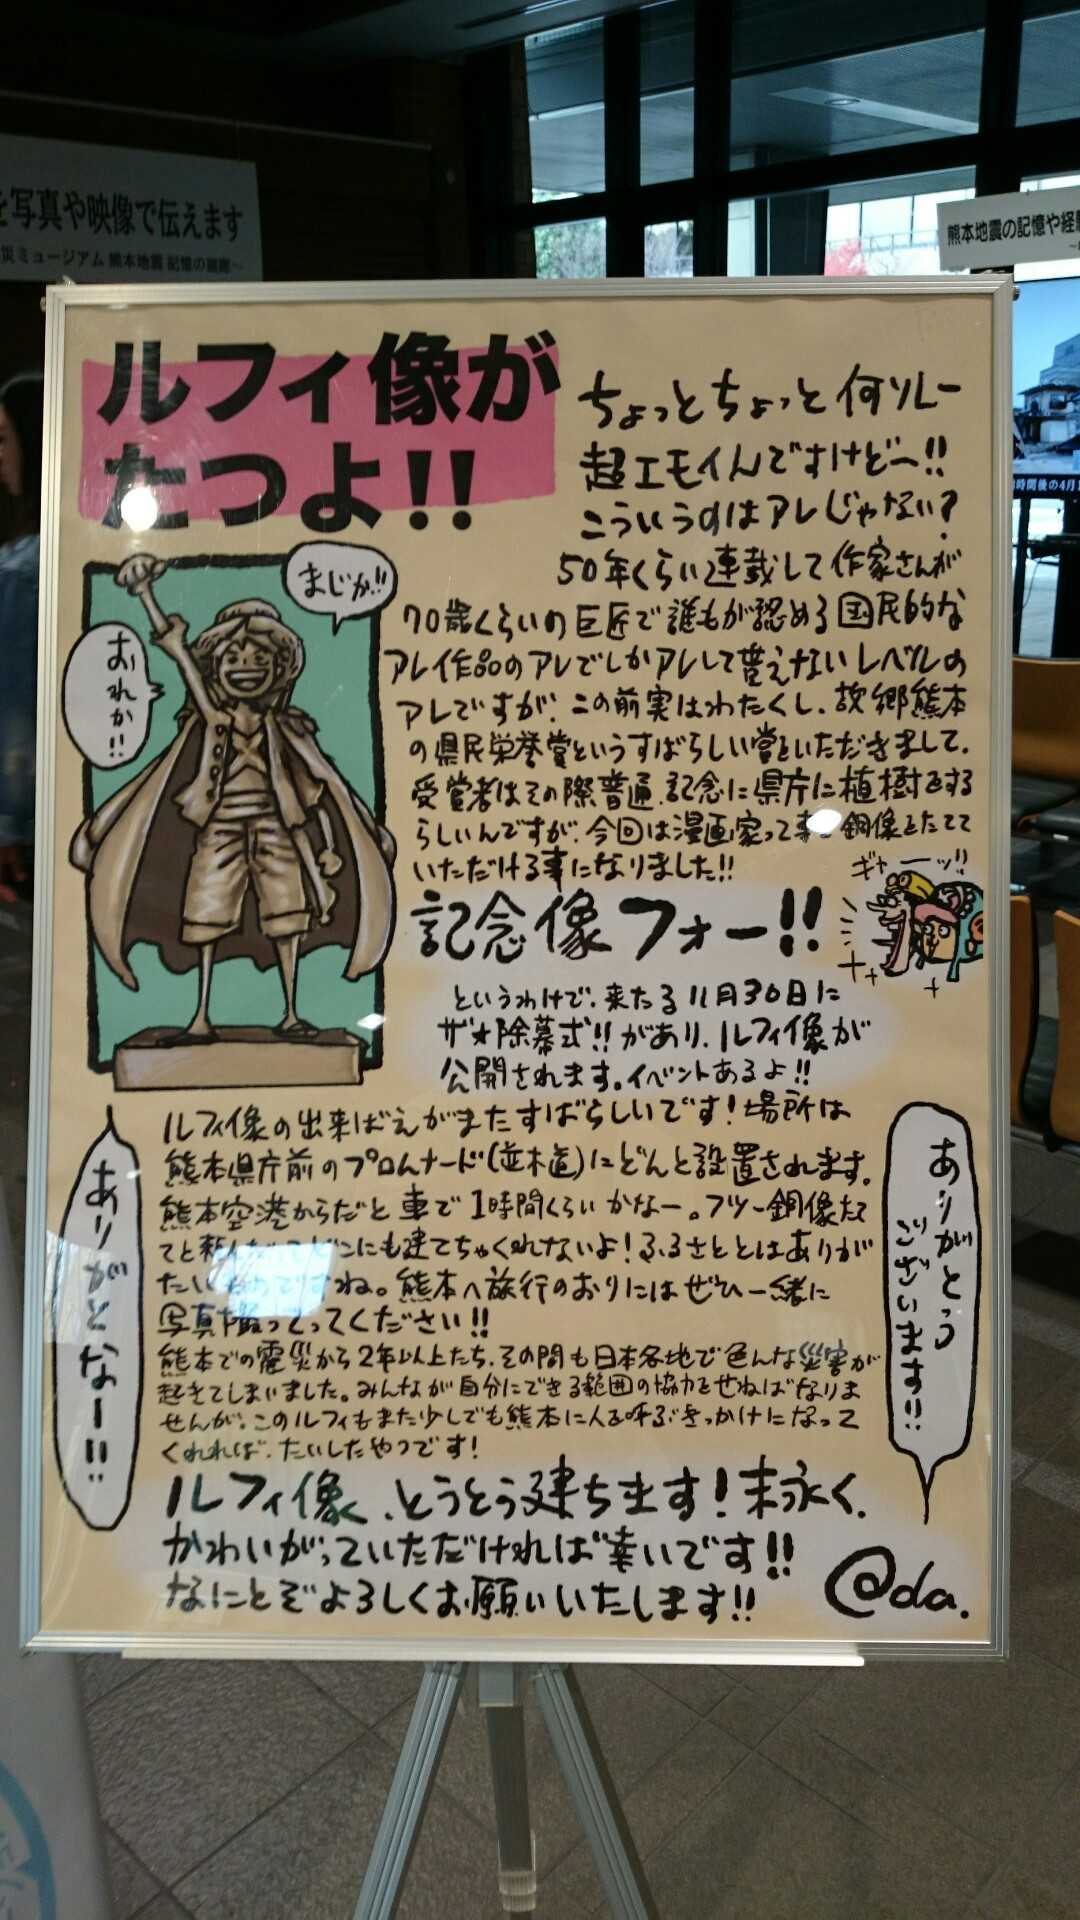 を写真や映像で伝えます
災ミュージアム 熊本地震 記憶の廻廊～
熊本地震の記憶や経
時間後の4月1
ルフィ像が
たつよ!!
ちょっとちょっと何ソレー
超エモイんですけどー!!
こういうのはアレじゃない?
50年くらい連載して作家さんが
70歳くらいの巨匠で誰もが認める国民的な
アレ作品のアレでしかアレして貰えないレベルの
アレですが、この前実はわたくし、故郷熊本
の県民栄誉賞というすばらしい賞をいただきまして、
受賞者はその際普通、記念に県庁に植樹をする
らしいんですが、今回は漫画家って事で銅像をたてて
いただける事になりました!!
まじか!!
おれか!!
記念像フォー!!
ギャーッ!!
というわけで、来たる11月30日に
ザ★除幕式!!があり、ルフィ像が
公開されます。イベントあるよ!!
ルフィ像の出来ばえがまたすばらしいです!場所は
熊本県庁前のプロムナード(並木道)にどんと設置されます。
熊本空港からだと車で1時間くらいかなー。フツー銅像たて
てと頼んだってどこにも建てちゃくれないよ!ふるさととはありが
たいものですね。熊本へ旅行のおりにはぜひ一緒に
写真撮ってってください!!
熊本での震災から2年以上たち、その間も日本各地で色んな災害が
起きてしまいました。みんなが自分にできる範囲の協力をせねばなりま
せんが、このルフィもまた少しでも熊本に人を呼ぶきっかけになって
くれれば、たいしたやつです!
ルフィ像、とうとう建ちます!末永く、
かわいがっていただければ幸いです!!
なにとぞよろしくお願いいたします!!
ありがとなー!!
ありがとう
ございます!!
@da.